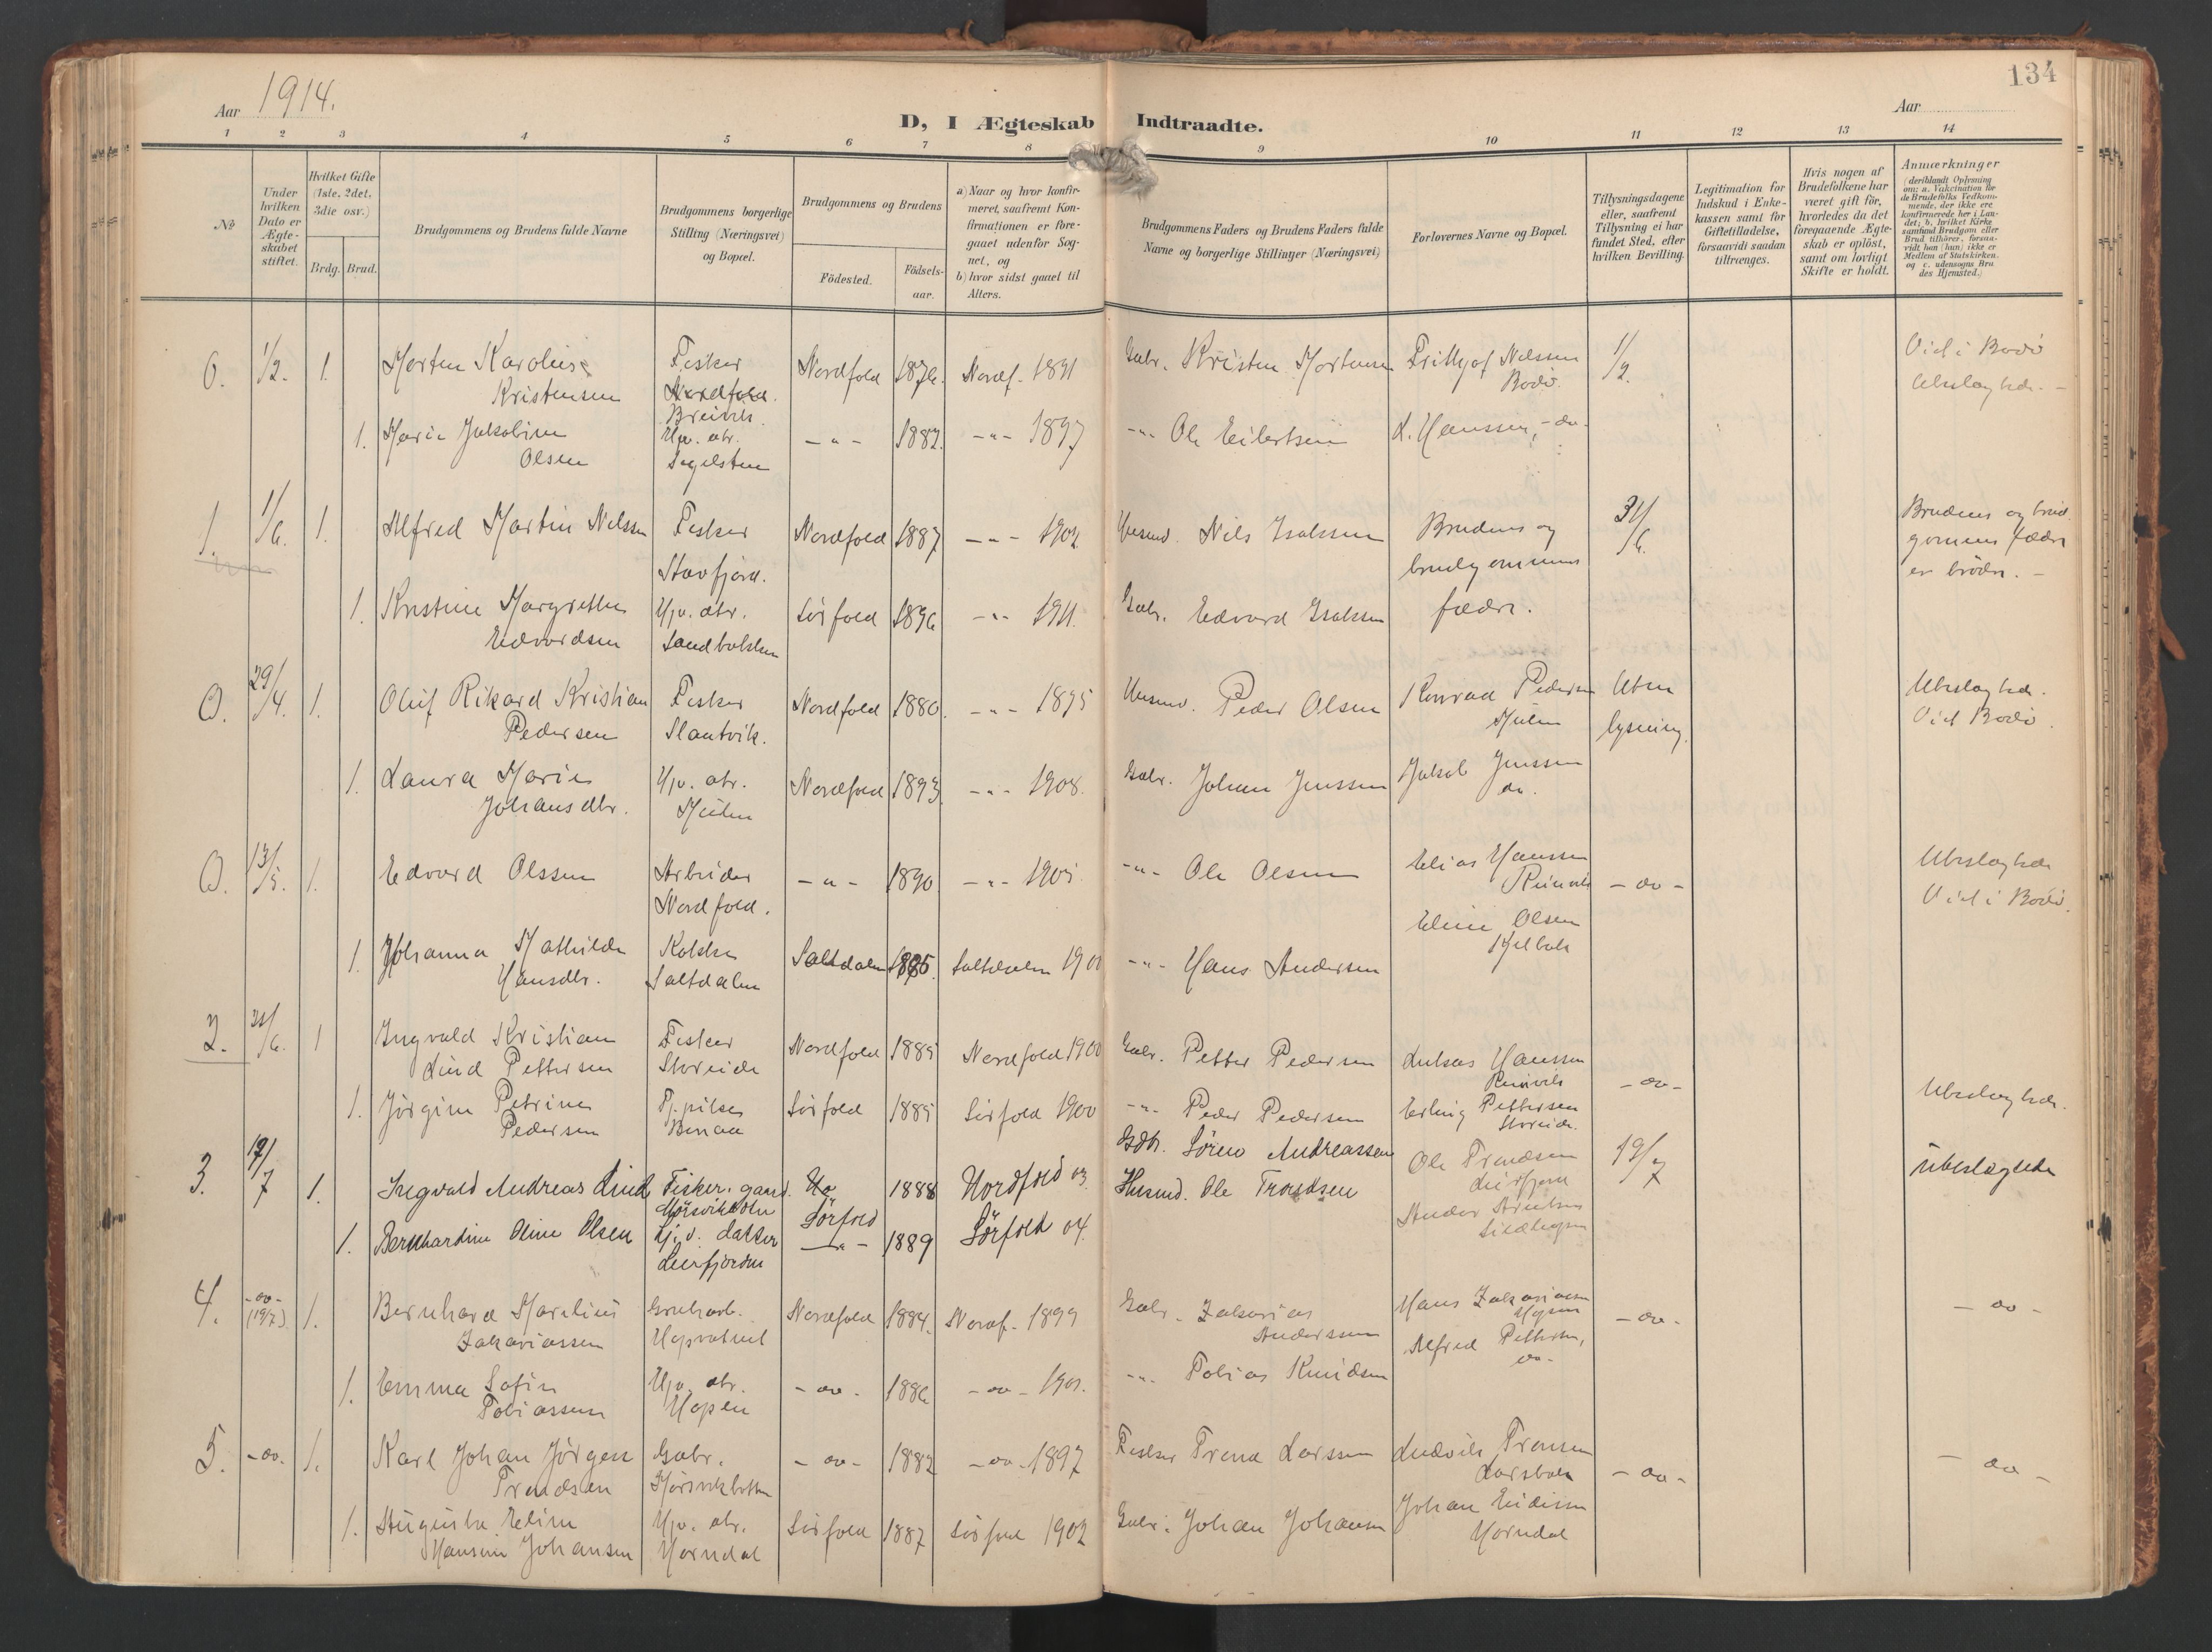 134
Aar 1914.
Aar
D, I Ægteskab Indtraadte.
1 2 3 4 5 6 7 8 9 10 11 12 13 14
No
Under hvilken Dato er Ægteskabet stiftet.
Hvilket Gifte (1ste, 2det, 3die osv.)
Brdg. Brud.
Brudgommens og Brudens fulde Navne
Brudgommens borgerlige Stilling (Næringsvei) og Bopæl.
Brudgommens og Brudens
Födested.
Födsels-aar.
a) Naar og hvor konfirmeret, saafremt Konfirmationen er foregaaet udenfor Sognet, og
b) hvor sidst gaaet til Alters.
Brudgommens Faders og Brudens Faders fulde Navne og borgerlige Stillinger (Næringsvei)
Forlovernes Navne og Bopæl.
Tillysningsdagene eller, saafremt Tillysning ei har fundet Sted, efter hvilken Bevilling.
Legitimation for Indskud i Enkekassen samt for Giftetilladelse, forsaavidt saadan tiltrænges.
Hvis nogen af Brudefolkene har været gift för, hvorledes da det foregaaende Ægteskab er oplöst, samt om lovligt Skifte er holdt.
Anmærkninger
(deriblandt Oplysning om: a. Vakcination for de Brudefolks Vedkommende, der ikke ere konfirmerede her i Landet; b. hvilket Kirkesamfund Brudgom eller Brud tilhører, forsaavidt han (hun) ikke er Medlem af Statskirken. og c. udensogns Brudes Hjemsted.)
0. 1/2. 1. Morten Karolius Fisker Nordfold 1876. Nordf. 1891 Gbr. Kristen Mortensen Frithjof Nilssen 1/2. Viet i Bodö
Kristensen Nordfold. Bodö. Ubeslægtede. -
Breivik.
1. Marie Jakobine Hjv. dtr. - " - 1882. - " - 1897 - " - Ole Eilertsen L. Hanssen, - do -
Olsen Segelsten
1. 1/6. 1. Alfred Martin Nilssen Fisker Nordfold 1887 - " - 1902 Husmd. Nils Isaksen Brudens og 31/6. Brudens og brud-
Stavfjord. brudgommens gomens fædre
1. Kristine Margrethe Hjv. dtr. Sörfold 1896 - " - 1911. Gbr. Edvard Isaksen fædre. er brödre. -
Edvardsen Sandbakken
0. 29/4. 1. Oluf Rikard Kristian Fisker Nordfold 1880. - " - 1895 Husmd. Peder Olsen Konrad Pedersen Uten Ubeslægtede.
Pedersen lysning. Viet Bodö.
1. Laura Marie Hjv. dtr. Nordfold 1893. - " - 1908. Gbr. Johan Jenssen Jakob Jenssen
Johansdtr. do.
0. 13/5. 1. Edvard Olssen Arbeider - " - 1890 - " - 1905 - " - Ole Olsen Elias Hanssen - do - Ubeslægtede
Nordfold. Reinvik Viet i Bodö.
Eline Olsen
1. Johanna Mathilde Kokke Saltdalen 1885. Saltdalen 1900 - " - Hans Andersen
Hansdtr. Saltdalen
2. 21/6. 1 Ingvald Kristian Fisker Nordfold 1885 Nordfold 1900 Gbr. Petter Pedersen Lukas Hanssen - do -
Lind Pettersen Storeide Reinvik Ubeslægtede.
1. Jörgine Petrine Tj.pike Sörfold 1885 Sörfold 1900 - " - Peder Pedersen Erling Pettersen
Pedersen Bonaa Storeide.
3. 19/7 1. Ingvald Andreas Lind Fisker. gaard. No 1888 Nordfold 03. Gdbr. Sören Andreassen Ole Trondsen 19/7 Ubeslægtede
Mörsvikbotn Sörfold Husmd. Ole Trondsen Leirfjord
1. Bernhardine Oline Olsen Hj. v. datter - " - 1889 Sörfold 04.
Leirfjorden
4. - do - (19/7). 1. Bernhard Marelius Nordfold 1884. Nordf. 1899 Gbr. Zakarias Hans Zakariasen - do - - do -
Zakariassen Hopvatnet Anderssen Hopen
Alfred Pettersen,
1. Emma Sofie Hjv. dtr. - do - 1886 - do - 1901. - " - Tobias Knudsen do -
Tobiassen Hopen
5. - do. 1. Karl Johan Jörgen Gbr. - do - 1882 - do - 1897 Fisker Trond Larssen Ludvik Tronsen - do - - do -
Trondsen Mörsvikbotten Larsbakk
1. Augusta Eline Hjv. dtr. Sörfold 1887 Sörfold 1902 Gbr. Johan Johansen Johan Eidissen
Hansine Johansen Horndal Horndal